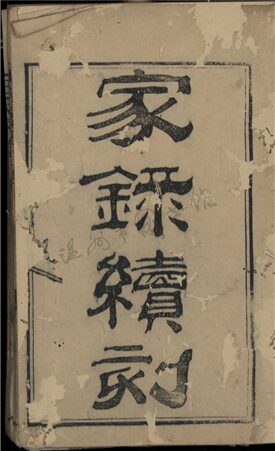 家錄續刻